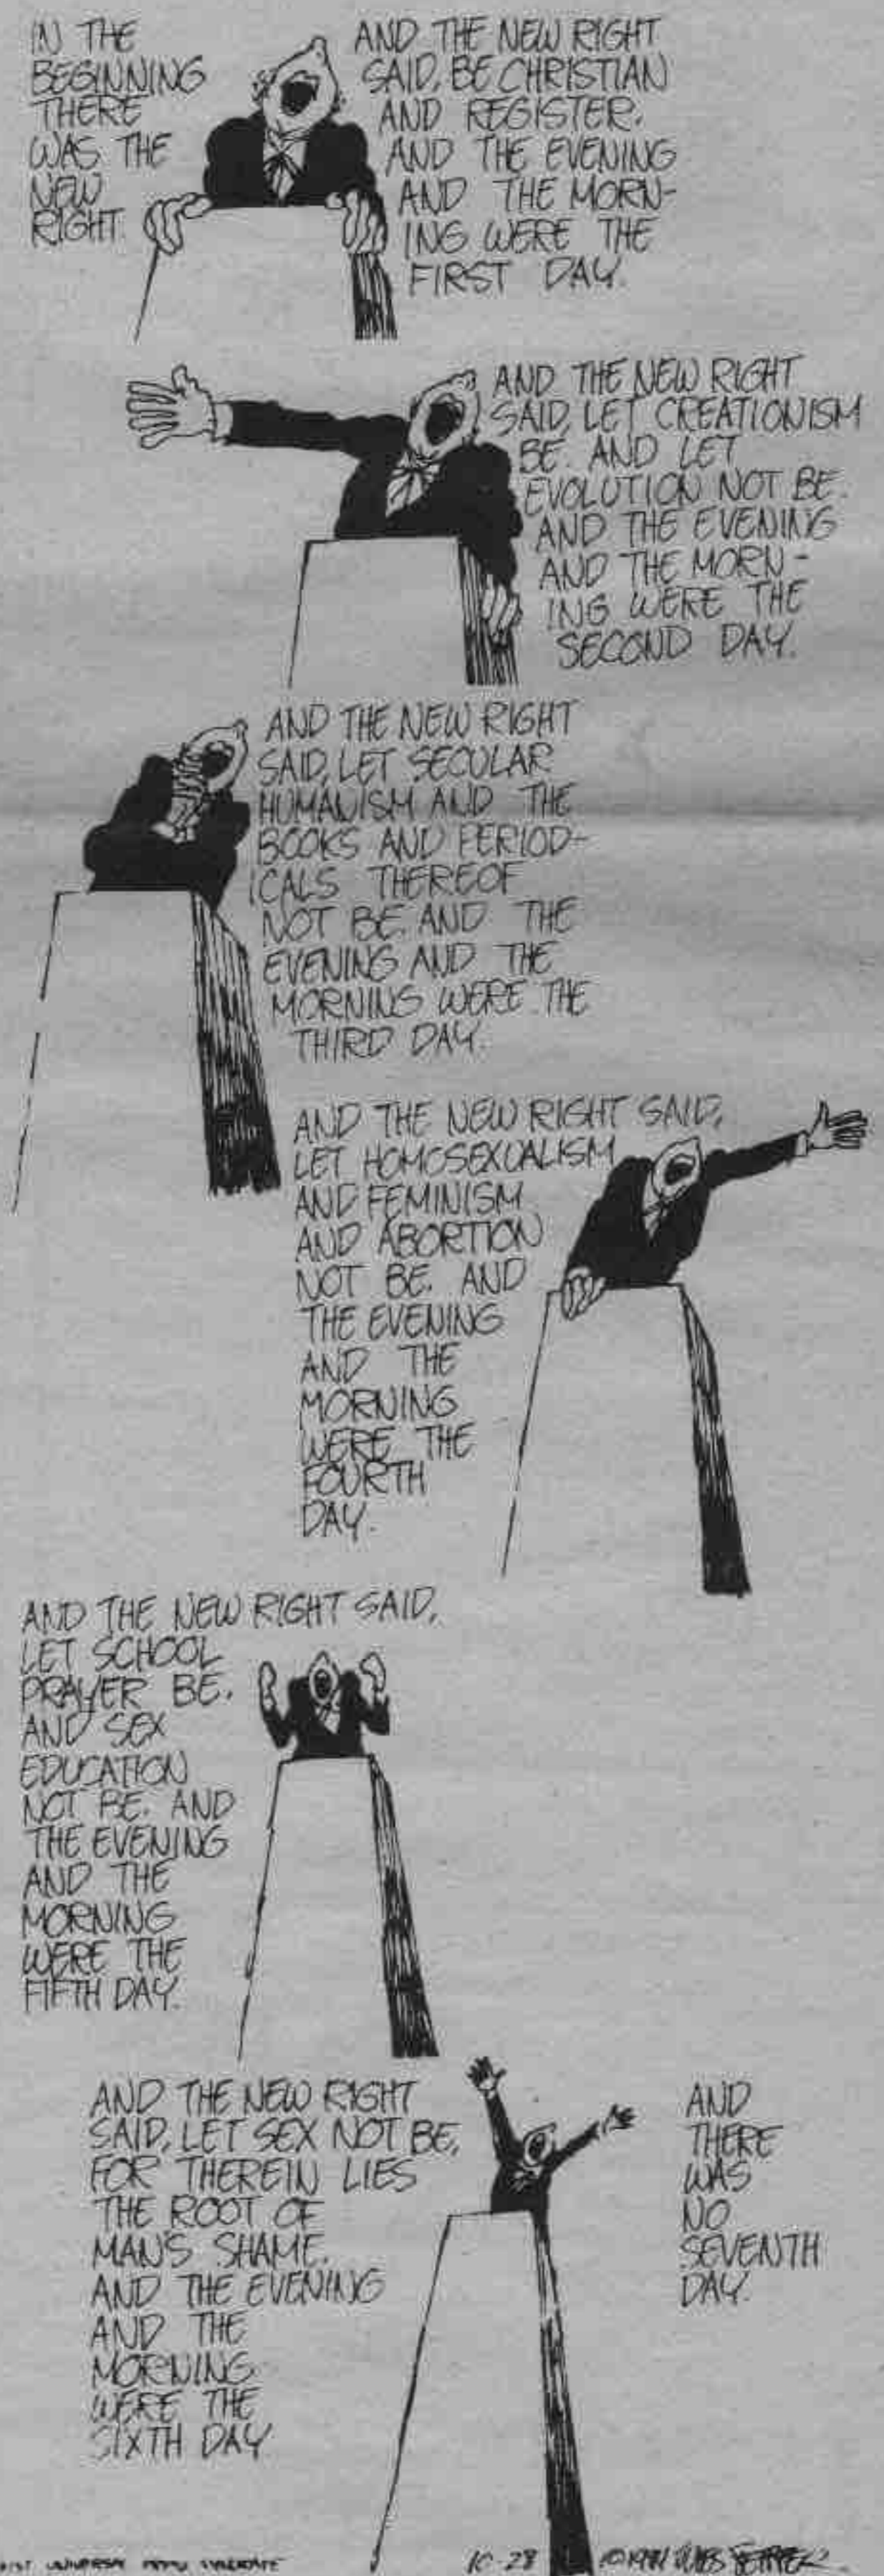 IN THE
BEGINNING
THERE
WAS THE
NEW
RIGHT.
AND THE NEW RIGHT
SAID, BE CHRISTIAN
AND REGISTER.
AND THE EVENING
AND THE MORN-
ING WERE THE
FIRST DAY.
AND THE NEW RIGHT
SAID, LET CREATIONISM
BE. AND LET
EVOLUTION NOT BE.
AND THE EVENING
AND THE MORN-
ING WERE THE
SECOND DAY.
AND THE NEW RIGHT
SAID, LET SECULAR
HUMANISM AND THE
BOOKS AND PERIOD-
ICALS THEREOF
NOT BE. AND THE
EVENING AND THE
MORNING WERE THE
THIRD DAY.
AND THE NEW RIGHT SAID,
LET HOMOSEXUALISM
AND FEMINISM
AND ABORTION
NOT BE. AND
THE EVENING
AND THE
MORNING
WERE THE
FOURTH
DAY.
AND THE NEW RIGHT SAID,
LET SCHOOL
PRAYER BE.
AND SEX
EDUCATION
NOT BE. AND
THE EVENING
AND THE
MORNING
WERE THE
FIFTH DAY.
AND THE NEW RIGHT
SAID, LET SEX NOT BE,
FOR THEREIN LIES
THE ROOT OF
MAN'S SHAME.
AND THE EVENING
AND THE
MORNING
WERE THE
SIXTH DAY
AND
THERE
WAS
NO
SEVENTH
DAY.
UNIVERSAL PRESS SYNDICATE
10-28 © JULES FEIFFER